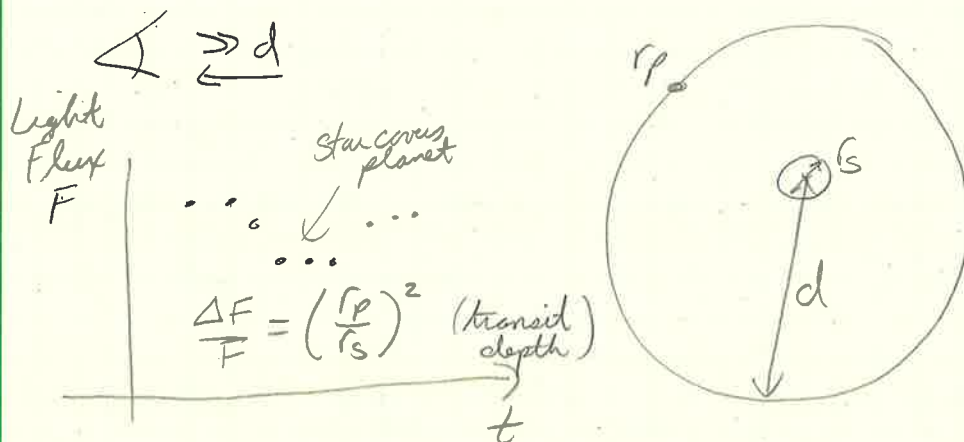 ≫ d
Light
Flux
F
star covers
planet
ΔF/F = (rp/rs)² (transit
depth)
t
rp
rs
d